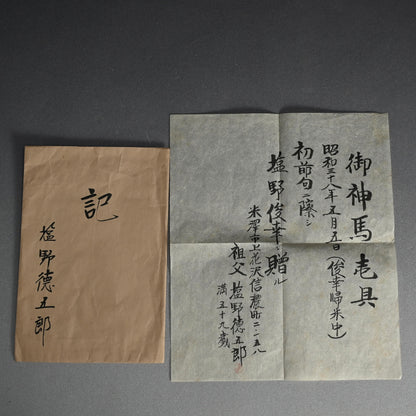 記
塩野徳五郎
御神馬壱具
昭和三十八年五月五日(俊幸帰米中)
初節句ニ際シ
塩野俊幸ニ贈ル
米澤市上花沢信濃町二一五八
祖父 塩野徳五郎
満五十九歳